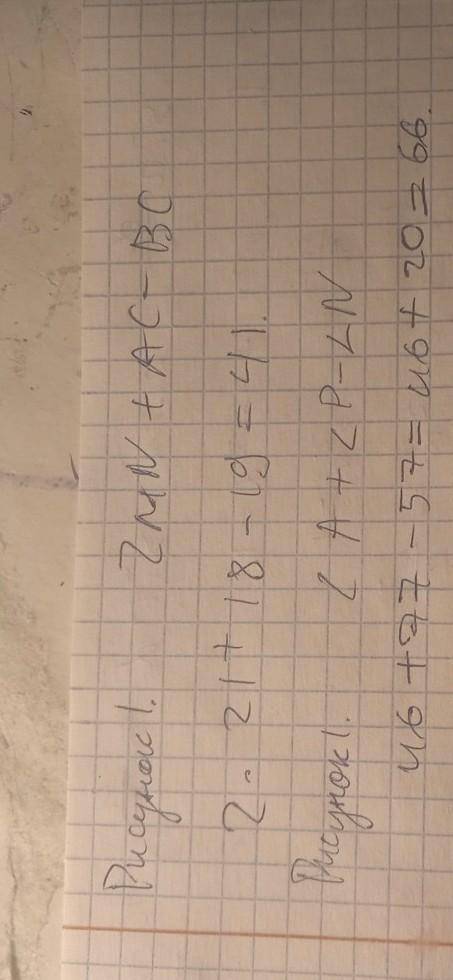 Рисунок 1. 2MN + AC - BC
2 · 21 + 18 - 19 = 41.
Рисунок 1. ∠A + ∠P - ∠N
46 + 77 - 57 = 46 + 20 = 66.